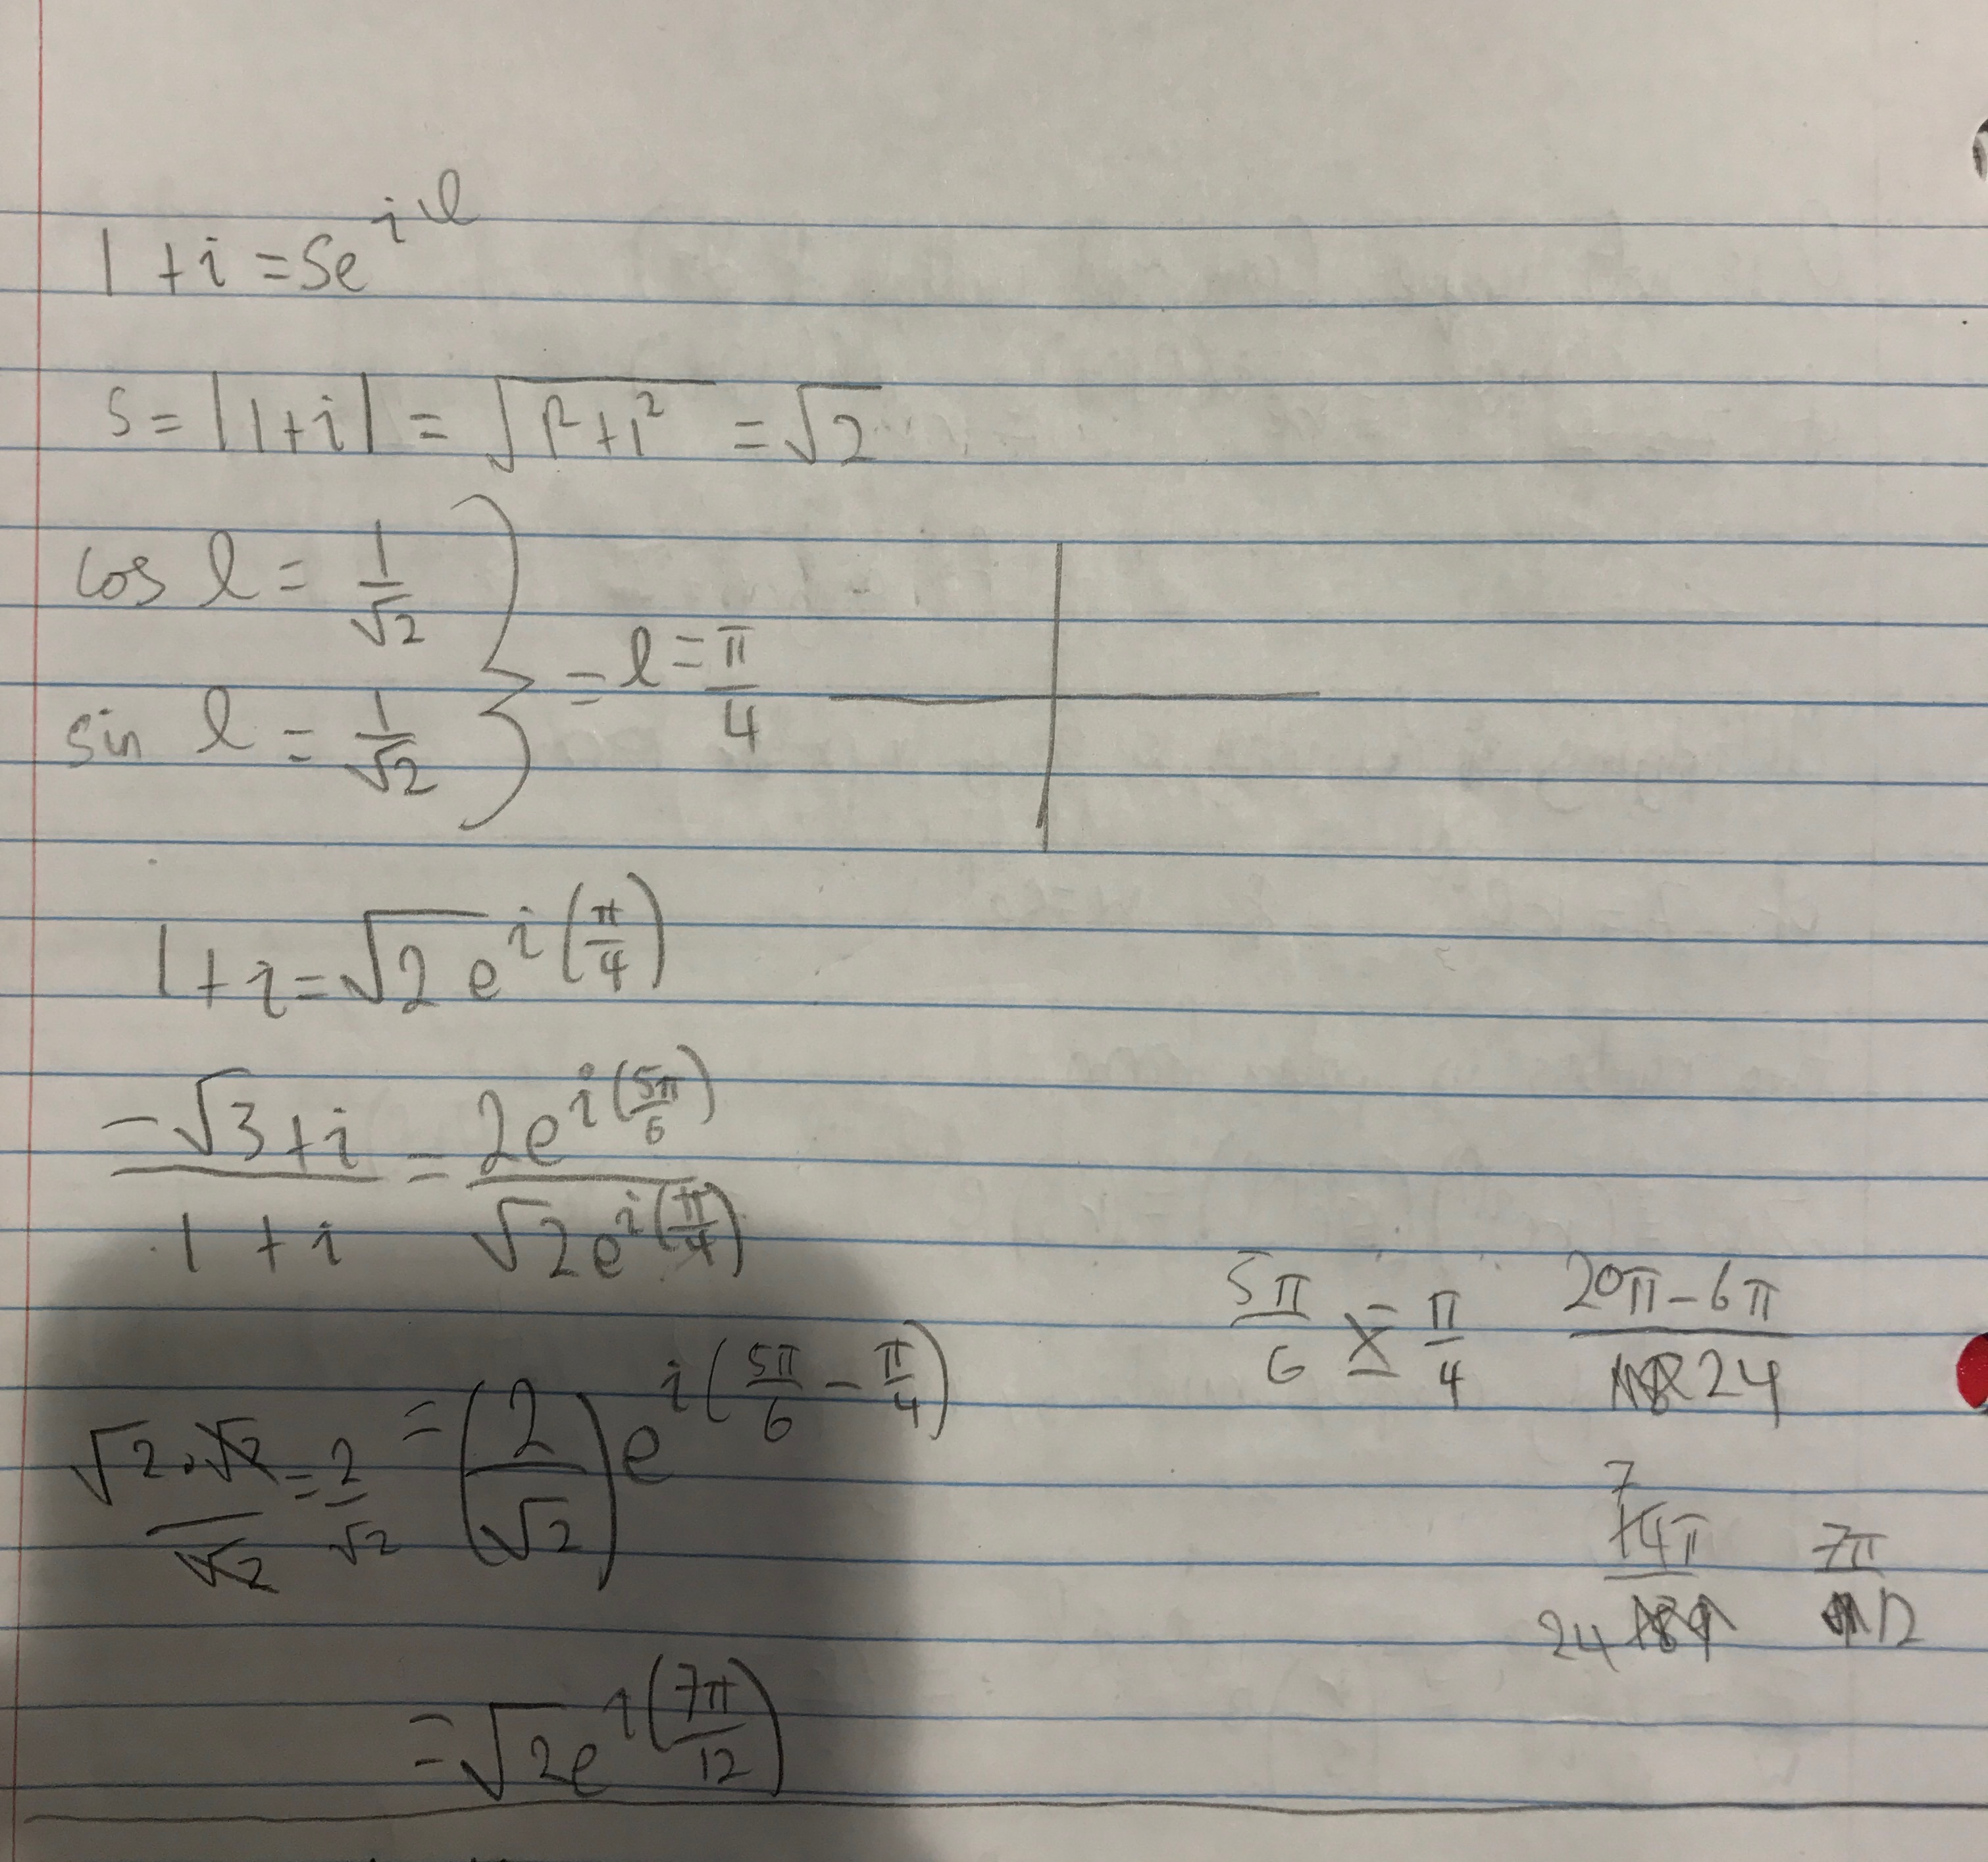 1 + i = Se^{il}
S = |1+i| = √(1²+1²) = √2
cos l = 1/√2
sin l = 1/√2
} = l = π/4
1 + i = √2 e^{i(π/4)}
(-√3 + i)/(1 + i) = 2e^{i(5π/6)}/√2e^{i(π/4)}
= (2/√2) e^{i(5π/6 - π/4)}
√2·√2/√2 = 2/√2
5π/6 - π/4
(20π - 6π)/24
7
14π/24
7π/12
= √2e^{i(7π/12)}